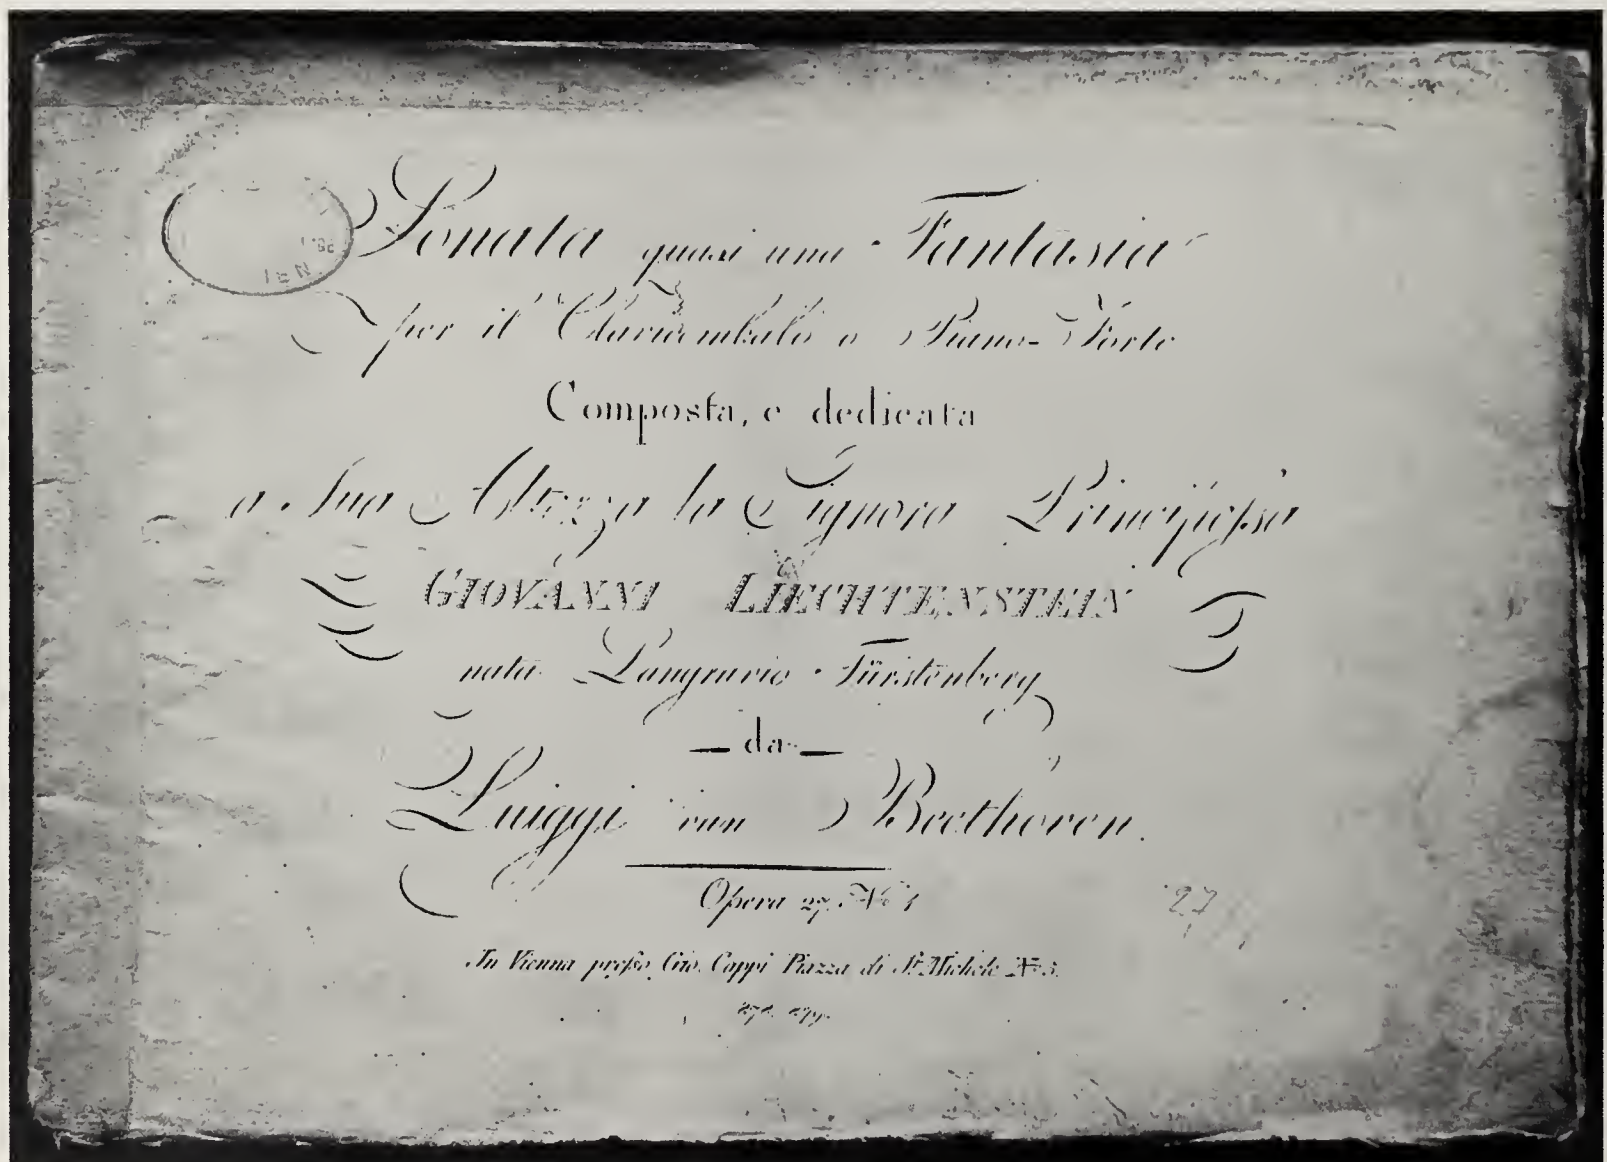 Sonata quasi una Fantasia
per il Clavicembalo o Piano-Forte
Composta, e dedicata
a Sua Altezza la Signora Principessa
GIOVANNI LIECHTENSTEIN
nata Langravio Fürstenberg
— da —
Luiggi van Beethoven.
Opera 27. No 1
In Vienna presso Gio. Cappi Piazza di St. Michele No 5.
27